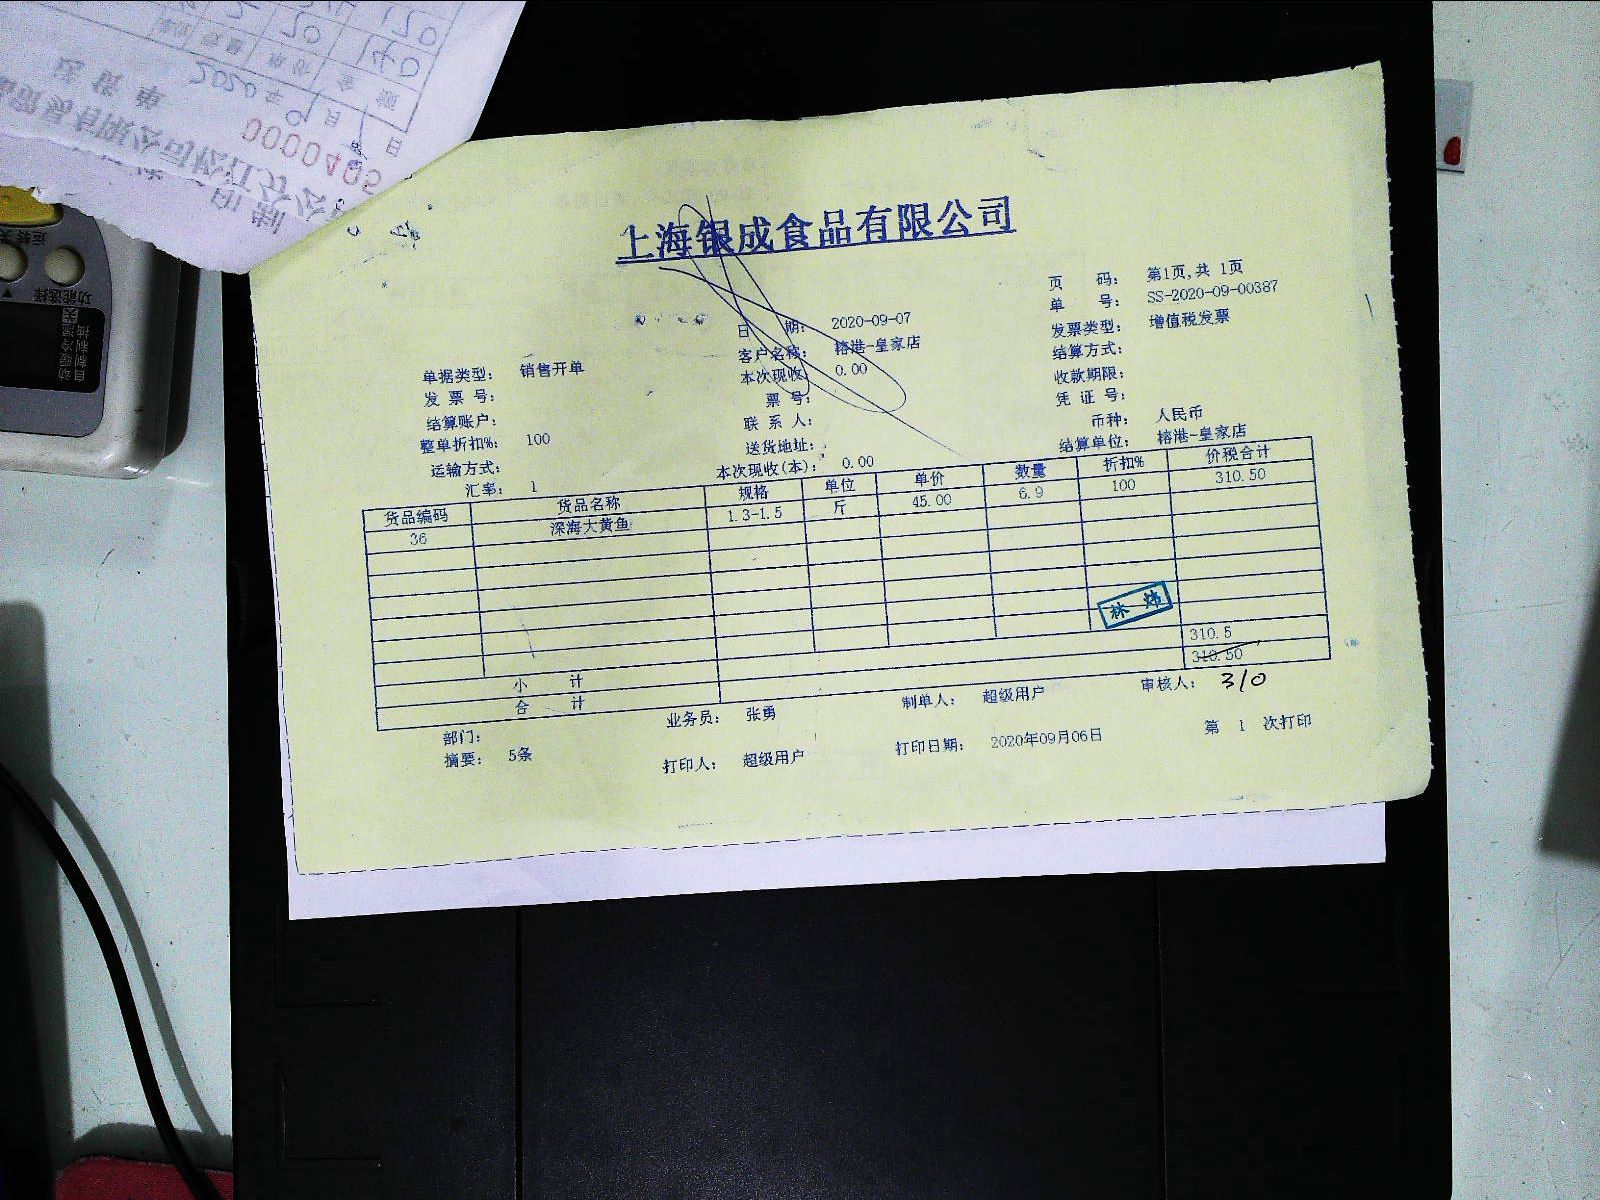 上海银成食品有限公司
页 码： 第1页,共 1页
单 号： SS-2020-09-00387
日 期： 2020-09-07
发票类型： 增值税发票
客户名称： 榕港-皇家店
结算方式：
单据类型： 销售开单
本次现收： 0.00
收款期限：
发 票 号：
票 号：
凭 证 号：
结算账户：
联 系 人：
币种： 人民币
整单折扣%： 100
送货地址：
结算单位： 榕港-皇家店
运输方式：
本次现收(本)： 0.00
汇率： 1
货品编码 货品名称 规格 单位 单价 数量 折扣% 价税合计
36 深海大黄鱼 1.3-1.5 斤 45.00 6.9 100 310.50
林 炜
小 计 310.5
合 计 310.50
310
部门： 业务员： 张勇 制单人： 超级用户 审核人：
摘要： 5条 打印人： 超级用户 打印日期： 2020年09月06日 第 1 次打印
0000405
2020年9月 日
140
120
20
功能选择
自动
制暖
制冷
除湿